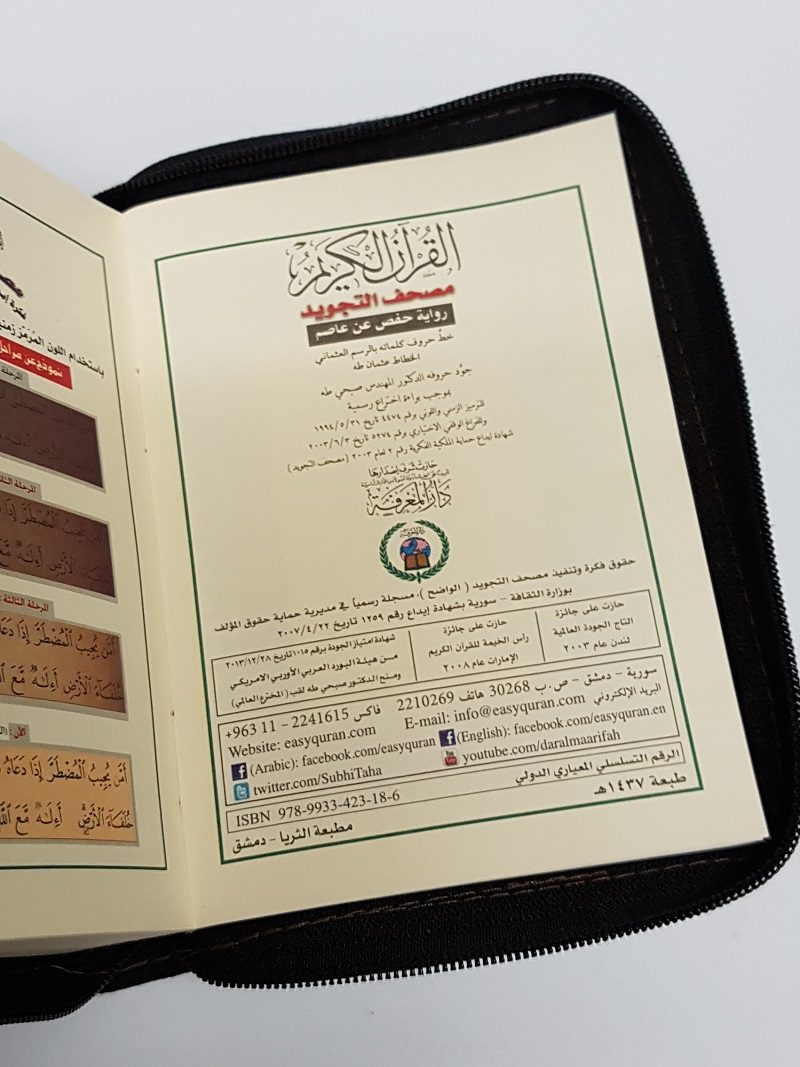 القرآن الكريم
مصحف التجويد
رواية حفص عن عاصم
خطّ حروف كلماته بالرسم العثماني
الخطاط عثمان طه
جوّد حروفه الدكتور المهندس صبحي طه
بموجب براءة اختراع رسمية
للترميز الزمني واللوني برقم ٤٤٧٤ تاريخ ١٩٩٤/٥/٣١
وللفراغ الوقفي الاختياري برقم ٥٢٧٤ تاريخ ٢٠٠٣/٦/٣
شهادة ايداع حماية الملكية الفكرية رقم ٢ لعام ٢٠٠٣ (مصحف التجويد)
حازت شرف إصدارها
دار المعرفة
حقوق فكرة وتنفيذ مصحف التجويد ( الواضح )، مسجلة رسمياً في مديرية حماية حقوق المؤلف
بوزارة الثقافة – سورية بشهادة إيداع رقم ١٢٥٩ تاريخ ٢٠٠٧/٤/٢٢
حازت على جائزة
التاج الجودة العالمية
لندن عام ٢٠٠٣
حازت على جائزة
رأس الخيمة للقرآن الكريم
الإمارات عام ٢٠٠٨
شهادة امتياز الجودة برقم ١٠١٥ تاريخ ٢٠١٣/١٢/٢٨
من هيئة البورد العربي الأوربي الامريكي
ومنح الدكتور صبحي طه لقب (المخترع العالمي)
سورية – دمشق – ص.ب 30268 هاتف 2210269 فاكس 2241615 – 11 963+
البريد الإلكتروني E-mail: info@easyquran.com Website: easyquran.com
(Arabic): facebook.com/easyquran (English): facebook.com/easyquran.en
twitter.com/SubhiTaha youtube.com/daralmaarifah
الرقم التسلسلي المعياري الدولي ISBN 978-9933-423-18-6
طبعة ١٤٣٧هـ
مطبعة الثريا – دمشق
باستخدام اللون المُرمّز زمني
المرحلة الثالثة
أَمَّن يُجِيبُ ٱلْمُضْطَرَّ إِذَا دَعَاهُ
خُلَفَآءَ ٱلْأَرْضِ أَءِلَٰهٌ مَّعَ ٱللَّهِ